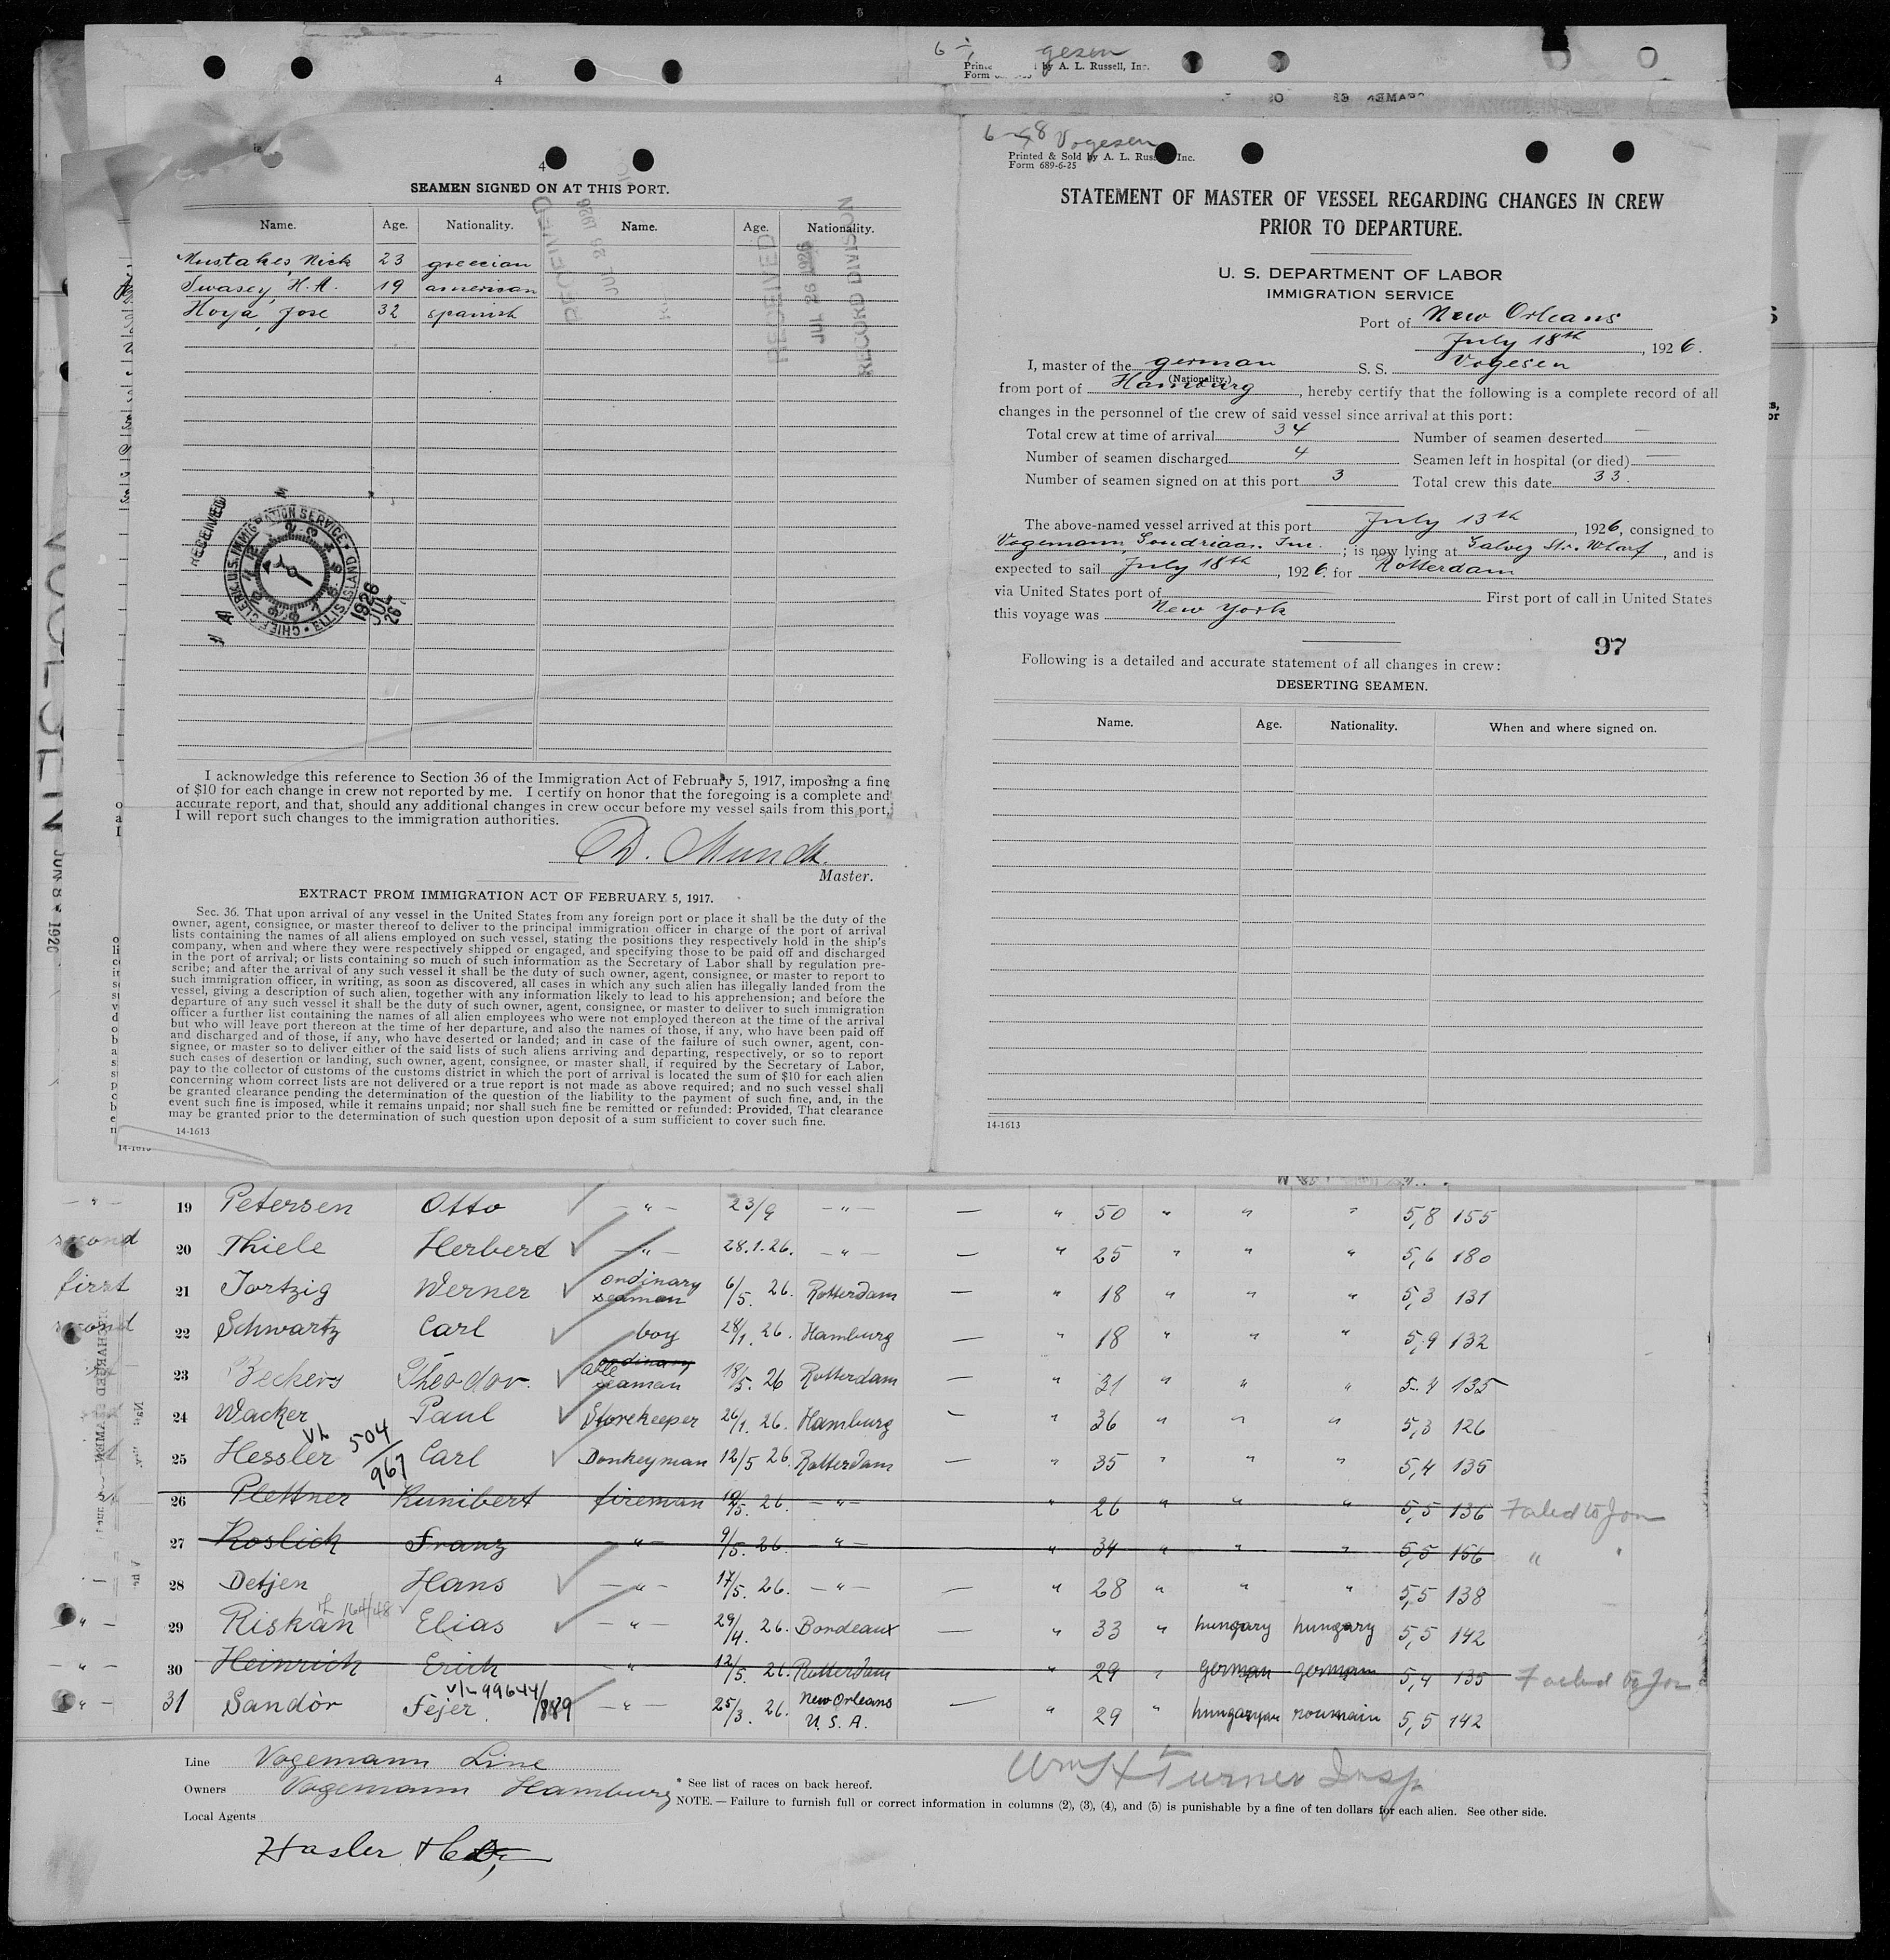 4
6 - gesen
by A. L. Russell, Inc.
Form
4
SEAMEN SIGNED ON AT THIS PORT.
Name. Age. Nationality. Name. Age. Nationality.
Mustakes, Nick 23 greecian
Swasey, H. A. 19 american
Hoya, Jose 32 spanish
RECEIVED
JUL 26 1926
RECORD DIVISION
RECEIVED
CHIEF CLERK U.S. IMMIGRATION SERVICE • ELLIS ISLAND •
1926 JUL 26
I acknowledge this reference to Section 36 of the Immigration Act of February 5, 1917, imposing a fine
of $10 for each change in crew not reported by me. I certify on honor that the foregoing is a complete and
accurate report, and that, should any additional changes in crew occur before my vessel sails from this port,
I will report such changes to the immigration authorities.
D. Mundt.
Master.
EXTRACT FROM IMMIGRATION ACT OF FEBRUARY 5, 1917.
Sec. 36. That upon arrival of any vessel in the United States from any foreign port or place it shall be the duty of the
owner, agent, consignee, or master thereof to deliver to the principal immigration officer in charge of the port of arrival
lists containing the names of all aliens employed on such vessel, stating the positions they respectively hold in the ship's
company, when and where they were respectively shipped or engaged, and specifying those to be paid off and discharged
in the port of arrival; or lists containing so much of such information as the Secretary of Labor shall by regulation pre-
scribe; and after the arrival of any such vessel it shall be the duty of such owner, agent, consignee, or master to report to
such immigration officer, in writing, as soon as discovered, all cases in which any such alien has illegally landed from the
vessel, giving a description of such alien, together with any information likely to lead to his apprehension; and before the
departure of any such vessel it shall be the duty of such owner, agent, consignee, or master to deliver to such immigration
officer a further list containing the names of all alien employees who were not employed thereon at the time of the arrival
but who will leave port thereon at the time of her departure, and also the names of those, if any, who have been paid off
and discharged and of those, if any, who have deserted or landed; and in case of the failure of such owner, agent, con-
signee, or master so to deliver either of the said lists of such aliens arriving and departing, respectively, or so to report
such cases of desertion or landing, such owner, agent, consignee, or master shall, if required by the Secretary of Labor,
pay to the collector of customs of the customs district in which the port of arrival is located the sum of $10 for each alien
concerning whom correct lists are not delivered or a true report is not made as above required; and no such vessel shall
be granted clearance pending the determination of the question of the liability to the payment of such fine, and, in the
event such fine is imposed, while it remains unpaid; nor shall such fine be remitted or refunded: Provided, That clearance
may be granted prior to the determination of such question upon deposit of a sum sufficient to cover such fine.
14-1613
6-48 Vogesen
Printed & Sold by A. L. Russ Inc.
Form 689-6-25
STATEMENT OF MASTER OF VESSEL REGARDING CHANGES IN CREW
PRIOR TO DEPARTURE.
U. S. DEPARTMENT OF LABOR
IMMIGRATION SERVICE
Port of New Orleans
July 18th, 1926.
I, master of the german S. S. Vogesen
(Nationality.)
from port of Hamburg, hereby certify that the following is a complete record of all
changes in the personnel of the crew of said vessel since arrival at this port:
Total crew at time of arrival 34 Number of seamen deserted —
Number of seamen discharged 4 Seamen left in hospital (or died) —
Number of seamen signed on at this port 3 Total crew this date 33.
The above-named vessel arrived at this port July 13th, 1926, consigned to
Vogemann, Goudriaan. Inc.; is now lying at Galvez Str. Wharf, and is
expected to sail July 18th, 1926. for Rotterdam
via United States port of — First port of call in United States
this voyage was New York
97
Following is a detailed and accurate statement of all changes in crew:
DESERTING SEAMEN.
Name. Age. Nationality. When and where signed on.
14-1613
VOGESEN JUN 8 1926
-"- 19 Petersen Otto -"- 23/9 -"- — " 50 " " " 5,8 155
second 20 Thiele Herbert -"- 28.1.26. -"- — " 25 " " " 5,6 180
first 21 Jortzig Werner ordinary seaman 6/5. 26. Rotterdam — " 18 " " " 5,3 131
second 22 Schwartz Carl boy 28/1. 26. Hamburg — " 18 " " " 5,9 132
23 Beckers Theodor. ordinary able seaman 18/5. 26 Rotterdam — " 31 " " " 5,4 135
24 Wacker Paul Storekeeper 26/1. 26. Hamburg — " 36 " " " 5,3 126
25 Hessler VL 504/967 Carl Donkeyman 12/5 26. Rotterdam — " 35 " " " 5,4 135
26 Plettner Kunibert fireman 10/5. 26. -"- " 26 " " " 5,5 136 Failed to Join
27 Koslick Franz -"- 9/5. 26. -"- " 34 " " " 5,5 156 " "
28 Detjen Hans -"- 17/5. 26. -"- — " 28 " " " 5,5 138
-"- 29 Riskan 164/48 Elias -"- 29/4. 26. Bordeaux — " 33 " hungary hungary 5,5 142
-"- 30 Heinrich Erich " 12/5. 26. Rotterdam " 29 " german german 5,4 135 Failed to Join
-"- 31 Sandòr Fejer VL 99644/889 -"- 25/3. 26. New Orleans U. S. A. — " 29 " hungaryan roumain 5,5 142
Line Vogemann Line
Owners Vogemann Hamburg
Local Agents
Hasler & Co,
* See list of races on back hereof.
NOTE.—Failure to furnish full or correct information in columns (2), (3), (4), and (5) is punishable by a fine of ten dollars for each alien. See other side.
Wm H Turner Insp